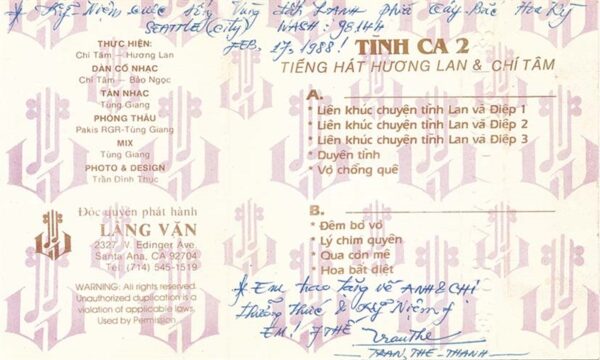 * Kỷ Niệm cuộc sống Vùng XANH phía Tây Bắc Hoa Kỳ
SEATTLE (City) WASH: 98144
FEB, 17, 1988!
THỰC HIỆN:
Chí Tâm — Hương Lan
DÀN CỔ NHẠC
Chí Tâm — Bảo Ngọc
TÂN NHẠC
Tùng Giang
PHÒNG THÂU
Pakis RGR-Tùng Giang
MIX
Tùng Giang
PHOTO & DESIGN
Trần Đình Thục
Độc quyền phát hành
LÀNG VĂN
2327 W. Edinger Ave.
Santa Ana, CA 92704
Tel: (714) 545-1519
WARNING: All rights reserved.
Unauthorized duplication is a
violation of applicable laws.
Used by Permission
TÌNH CA 2
TIẾNG HÁT HƯƠNG LAN & CHÍ TÂM
A.
* Liên khúc chuyện tình Lan và Điệp 1
* Liên khúc chuyện tình Lan và Điệp 2
* Liên khúc chuyện tình Lan và Điệp 3
* Duyên tình
* Vợ chồng quê
B.
* Đêm bơ vơ
* Lý chim quyên
* Qua cơn mê
* Hoa bất diệt
* Em trao tặng về ANH & CHỊ
Thưởng Thức & Kỷ Niệm
EM! 7 THẾ
TRAN, THE-THANH